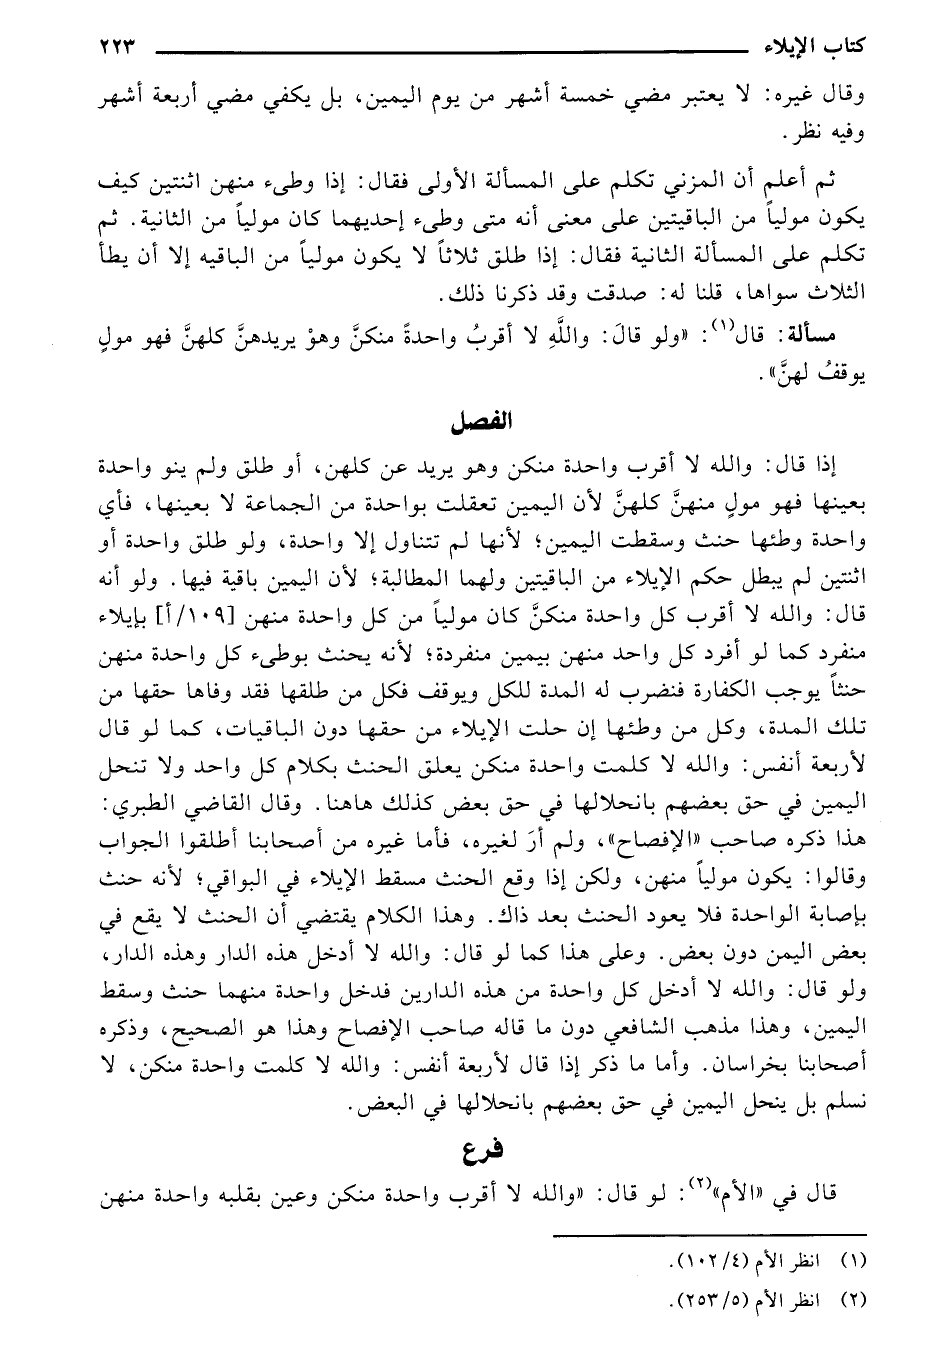 كتاب الإيلاء ٢٢٣
وقال غيره: لا يعتبر مضي خمسة أشهر من يوم اليمين، بل يكفي مضي أربعة أشهر
وفيه نظر.
ثم أعلم أن المزني تكلم على المسألة الأولى فقال: إذا وطىء منهن اثنتين كيف
يكون مولياً من الباقيتين على معنى أنه متى وطىء إحديهما كان مولياً من الثانية. ثم
تكلم على المسألة الثانية فقال: إذا طلق ثلاثاً لا يكون مولياً من الباقيه إلا أن يطأ
الثلاث سواها، قلنا له: صدقت وقد ذكرنا ذلك.
مسألة: قال(١): «ولو قالَ: واللَّهِ لا أقربُ واحدةً منكنَّ وهوْ يريدهنَّ كلهنَّ فهو مولٍ
يوقفُ لهنَّ».
الفصل
إذا قال: والله لا أقرب واحدة منكن وهو يريد عن كلهن، أو طلق ولم ينو واحدة
بعينها فهو مولٍ منهنَّ كلهنَّ لأن اليمين تعقلت بواحدة من الجماعة لا بعينها، فأي
واحدة وطئها حنث وسقطت اليمين؛ لأنها لم تتناول إلا واحدة، ولو طلق واحدة أو
اثنتين لم يبطل حكم الإيلاء من الباقيتين ولهما المطالبة؛ لأن اليمين باقية فيها. ولو أنه
قال: والله لا أقرب كل واحدة منكنَّ كان مولياً من كل واحدة منهن [١٠٩/أ] بإيلاء
منفرد كما لو أفرد كل واحد منهن بيمين منفردة؛ لأنه يحنث بوطىء كل واحدة منهن
حنثاً يوجب الكفارة فنضرب له المدة للكل ويوقف فكل من طلقها فقد وفاها حقها من
تلك المدة، وكل من وطئها إن حلت الإيلاء من حقها دون الباقيات، كما لو قال
لأربعة أنفس: والله لا كلمت واحدة منكن يعلق الحنث بكلام كل واحد ولا تنحل
اليمين في حق بعضهم بانحلالها في حق بعض كذلك هاهنا. وقال القاضي الطبري:
هذا ذكره صاحب «الإفصاح»، ولم أرَ لغيره، فأما غيره من أصحابنا أطلقوا الجواب
وقالوا: يكون مولياً منهن، ولكن إذا وقع الحنث مسقط الإيلاء في البواقي؛ لأنه حنث
بإصابة الواحدة فلا يعود الحنث بعد ذاك. وهذا الكلام يقتضي أن الحنث لا يقع في
بعض اليمن دون بعض. وعلى هذا كما لو قال: والله لا أدخل هذه الدار وهذه الدار،
ولو قال: والله لا أدخل كل واحدة من هذه الدارين فدخل واحدة منهما حنث وسقط
اليمين، وهذا مذهب الشافعي دون ما قاله صاحب الإفصاح وهذا هو الصحيح، وذكره
أصحابنا بخراسان. وأما ما ذكر إذا قال لأربعة أنفس: والله لا كلمت واحدة منكن، لا
نسلم بل ينحل اليمين في حق بعضهم بانحلالها في البعض.
فرع
قال في «الأم»(٢): لو قال: «والله لا أقرب واحدة منكن وعين بقلبه واحدة منهن
(١) انظر الأم (٤/١٠٢).
(٢) انظر الأم (٥/٢٥٣).